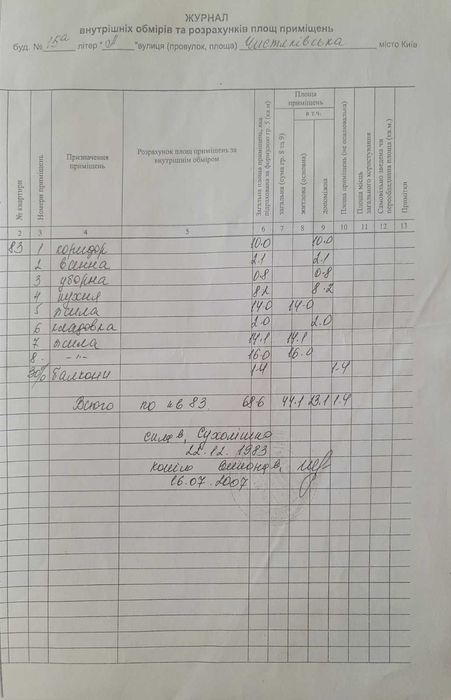 ЖУРНАЛ
внутрішніх обмірів та розрахунків площ приміщень
буд. № 15а літер "А" вулиця (провулок, площа) Чистяківська місто Київ
№ квартири
Номери приміщень
Призначення приміщень
Розрахунок площ приміщень за внутрішнім обміром
Загальна площа приміщень, яка підрахована за формулою гр. 5 (кв.м)
Площа приміщень
загальна (сума гр. 8 та 9)
в т.ч.
житлова (основна)
допоміжна
Площа приміщень (не опалювальна)
Площа місць загального користування
Самовільно зведена чи переобладнана площа (кв.м.)
Примітки
2 3 4 5 6 7 8 9 10 11 12 13
83 1 коридор 10.0 10.0
2 ванна 2.1 2.1
3 уборна 0.8 0.8
4 кухня 8.2 8.2
5 жила 14.0 14.0
6 кладовка 2.0 2.0
7 жила 14.1 14.1
8 -"- 16.0 16.0
30% балкони 1.4 1.4
Всього по кв 83 68.6 44.1 23.1 1.4
Сухолишко
22.12.1983
копія
16.07.2007